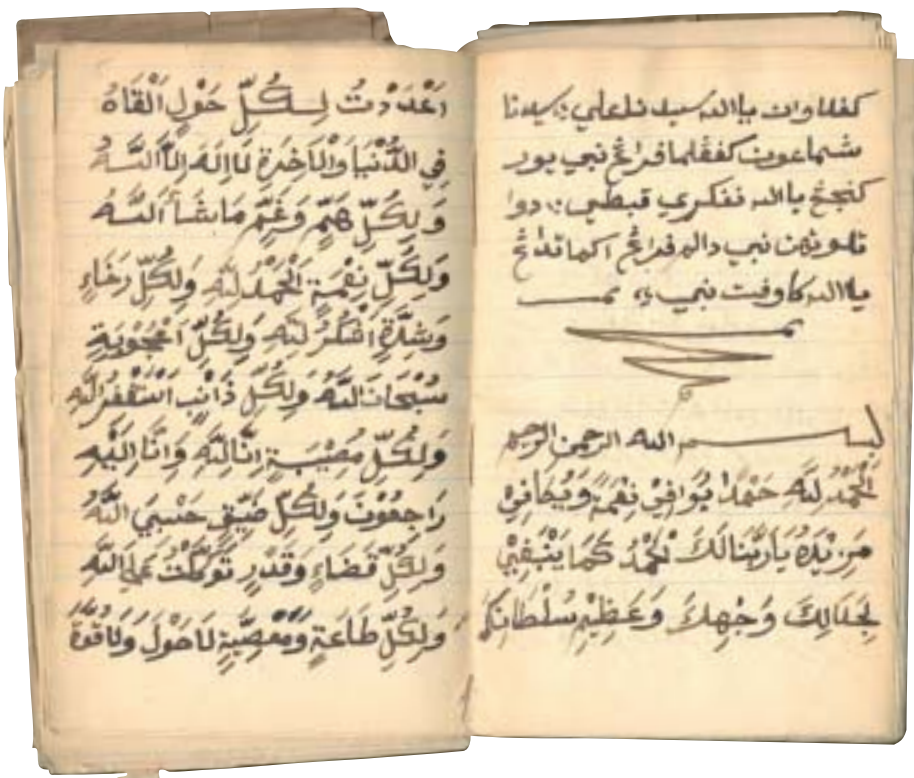 كفداوان ياالله سيدنا علي؛ سيدنا
شماعون كفقلما فراڠ نبي يور
كنجڠ ياالله نفكري قبطي؛ دوا
تلو نبي دالم فراڠ اكماتڠ
ياالله كاوفت نبي
بسم الله الرحمن الرحيم
اَلْحَمْدُ لِلَّهِ حَمْدًا يُوَافِيْ نِعْمَهُ وَيُكَافِيْ
مَزِيْدَهُ يَارَبَّنَا لَكَ الْحَمْدُ كَمَا يَنْبَغِيْ
لِجَلَالِكَ وَجْهِكَ وَعَظِيْمِ سُلْطَانِكَ
اَعْدَدْتُ لِكُلِّ حَوْلٍ اَلْقَاهُ
فِي الدُّنْيَا وَالْاَخِرَةِ لَااِلَهَ اِلَّااللَّهُ
وَلِكُلِّ هَمٍّ وَغَمٍّ مَاشَاَاللَّهُ
وَلِكُلِّ نِعْمَةٍ اَلْحَمْدُ لِلَّهِ وَلِكُلِّ رَخَاءٍ
وَشِدَّةٍ اَشْكُرُ لِلَّهِ وَلِكُلِّ اَعْجُوْبَةٍ
سُبْحَانَ اللَّهُ وَلِكُلِّ ذَانْبٍ اَسْتَغْفِرُ اللَّهَ
وَلِكُلِّ مُصِيْبَةٍ اِنَّالِلَّهِ وَاِنَّااِلَيْهِ
رَاجِعُوْنَ وَلِكُلِّ ضَيِّقٍ حَسْبِيَ اللَّهُ
وَلِكُلِّ قَضَاءٍ وَقَدَرٍ تَوَكَّلْتُ عَلَى اللَّهِ
وَلِكُلِّ طَاعَةٍ وَمَعْصِيَّةٍ لَاحَوْلَ وَلَاقُوَّةَ